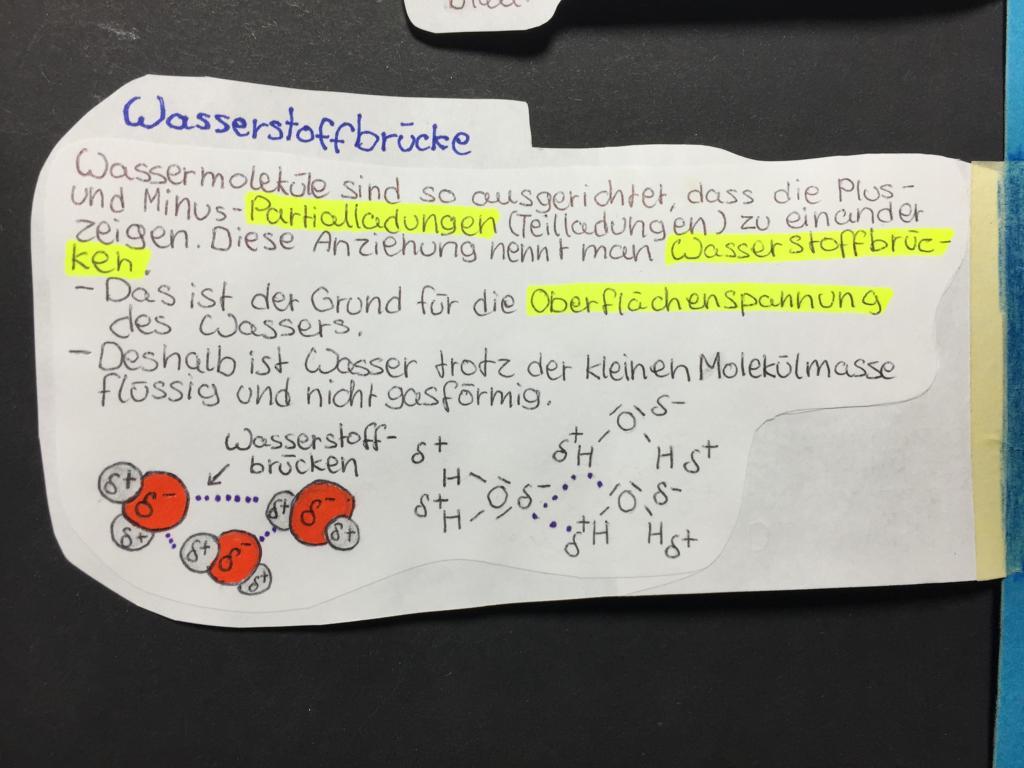 Wasserstoffbrücke
Wassermoleküle sind so ausgerichtet, dass die Plus-
und Minus-Partialladungen (Teilladungen) zu einander
zeigen. Diese Anziehung nennt man Wasserstoffbrüc-
ken.
- Das ist der Grund für die Oberflächenspannung
des Wassers.
- Deshalb ist Wasser trotz der kleinen Molekülmasse
flüssig und nicht gasförmig.
Wasserstoff-
brücken
δ+ δ- δ+
δ+ δ- δ+
δ+ δ- δ+
δ+ H
δ+ H O δ-
δ+ H O δ-
H δ+
δ+ H O δ-
H δ+